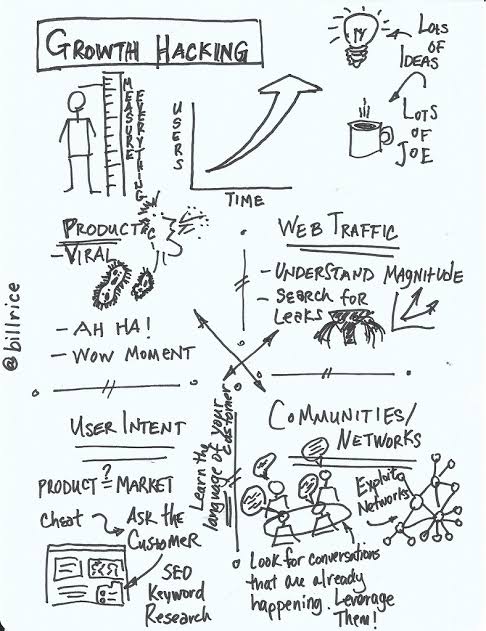 GROWTH HACKING
LOTS
OF
IDEAS
LOTS
OF
JOE
MEASURE
EVERYTHING
USERS
TIME
PRODUCT
- VIRAL
- AH HA!
- WOW MOMENT
WEB TRAFFIC
- UNDERSTAND MAGNITUDE
- SEARCH FOR
LEAKS
@billrice
USER INTENT
PRODUCT ?= MARKET
Cheat
ASK THE
CUSTOMER
SEO
KEYWORD
RESEARCH
Learn the
language of your
customer
COMMUNITIES/
NETWORKS
Exploit
Networks
Look for conversations
that are already
happening. Leverage
Them!